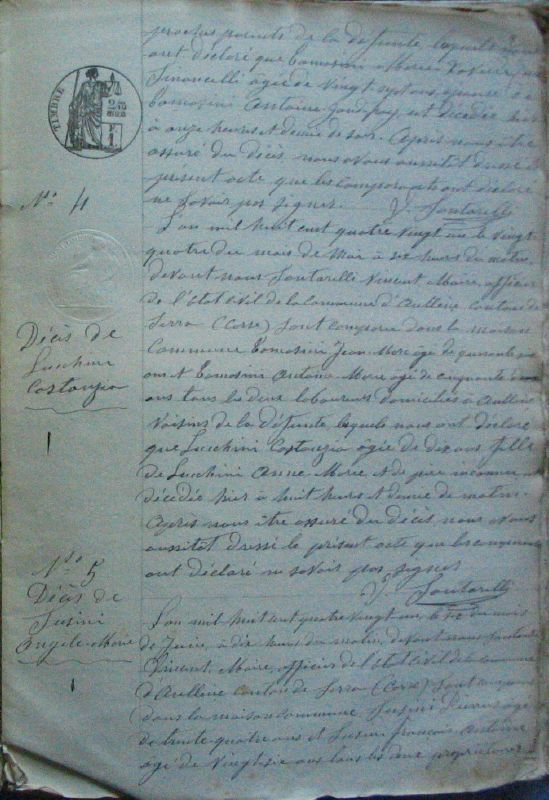 proches parents de la défunte lesquels nous
ont déclaré que Tomasini Marie Xavière,
Simoncelli âgée de vingt sept ans, épouse à
Tomasini Antoine Jaudifroy est décédée hier
à onze heures et demie de soir. Après nous être
assuré du décès nous avons aussitôt dressé le
présent acte que les comparants ont déclaré
ne savoir pas signer.
V. Santarelli
TIMBRE
N° 4
Décès de
Lucchini
Costanzia
1
L'an mil huit cent quatre vingt un le vingt
quatre du mois de Mai à dix heures du matin,
devant nous Santarelli Vincent Maire, officier
de l'état civil de la commune d'Aullene Canton de
Serra (Corse) sont comparus dans la maison
Commune Tomasini Jean Marc âgé de quarante
ans et Tomasini Antoine Marie âgé de cinquante
ans tous les deux laboureurs domiciliés à Aullene
Voisins de la défunte lesquels nous ont déclaré
que Lucchini Costanzia âgée de dix ans fille
de Lucchini Anne Marie et de père inconnu est
décédée hier à huit heures et demie de matin.
Après nous être assuré du décès nous avons
aussitôt dressé le présent acte que les comparants
ont déclaré ne savoir pas signer
V. Santarelli
N° 5
Décès de
Susini
Angèle Marie
1
L'an mil huit cent quatre vingt un, le du mois
de Juin, à dix heures du matin, devant nous Santarelli
Vincent, Maire, officier de l'état civil de la commune
d'Aullene canton de Serra (Corse) sont comparus
dans la maison commune Susini Pierre âgé
de trente quatre ans et Susini françois Antoine
âgé de vingt six ans tous les deux propriétaires